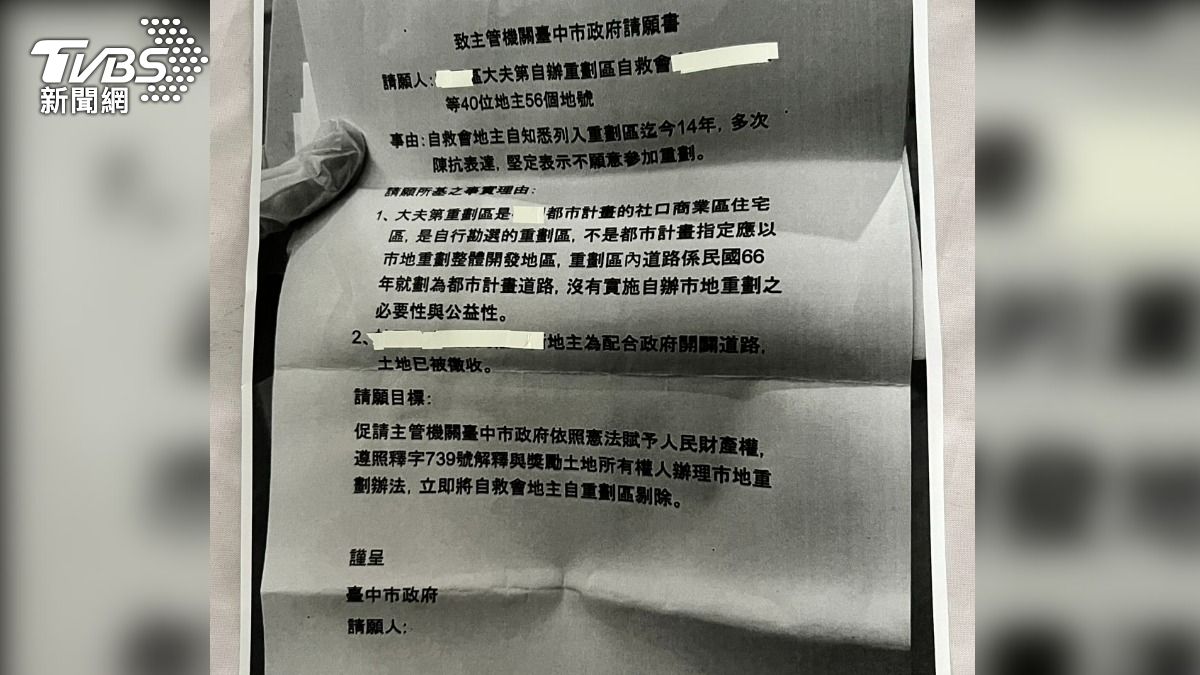 TVBS
新聞網
致主管機關臺中市政府請願書
請願人: 區大夫第自辦重劃區自救會
等40位地主56個地號
事由:自救會地主自知悉列入重劃區迄今14年,多次
陳抗表達,堅定表示不願意參加重劃。
請願所基之事實理由:
1、大夫第重劃區是 都市計畫的社口商業區住宅
區,是自行勘選的重劃區,不是都市計畫指定應以
市地重劃整體開發地區,重劃區內道路係民國66
年就劃為都市計畫道路,沒有實施自辦市地重劃之
必要性與公益性。
2、 地主為配合政府開闢道路,
土地已被徵收。
請願目標:
促請主管機關臺中市政府依照憲法賦予人民財產權,
遵照釋字739號解釋與獎勵土地所有權人辦理市地重
劃辦法,立即將自救會地主自重劃區剔除。
謹呈
臺中市政府
請願人: